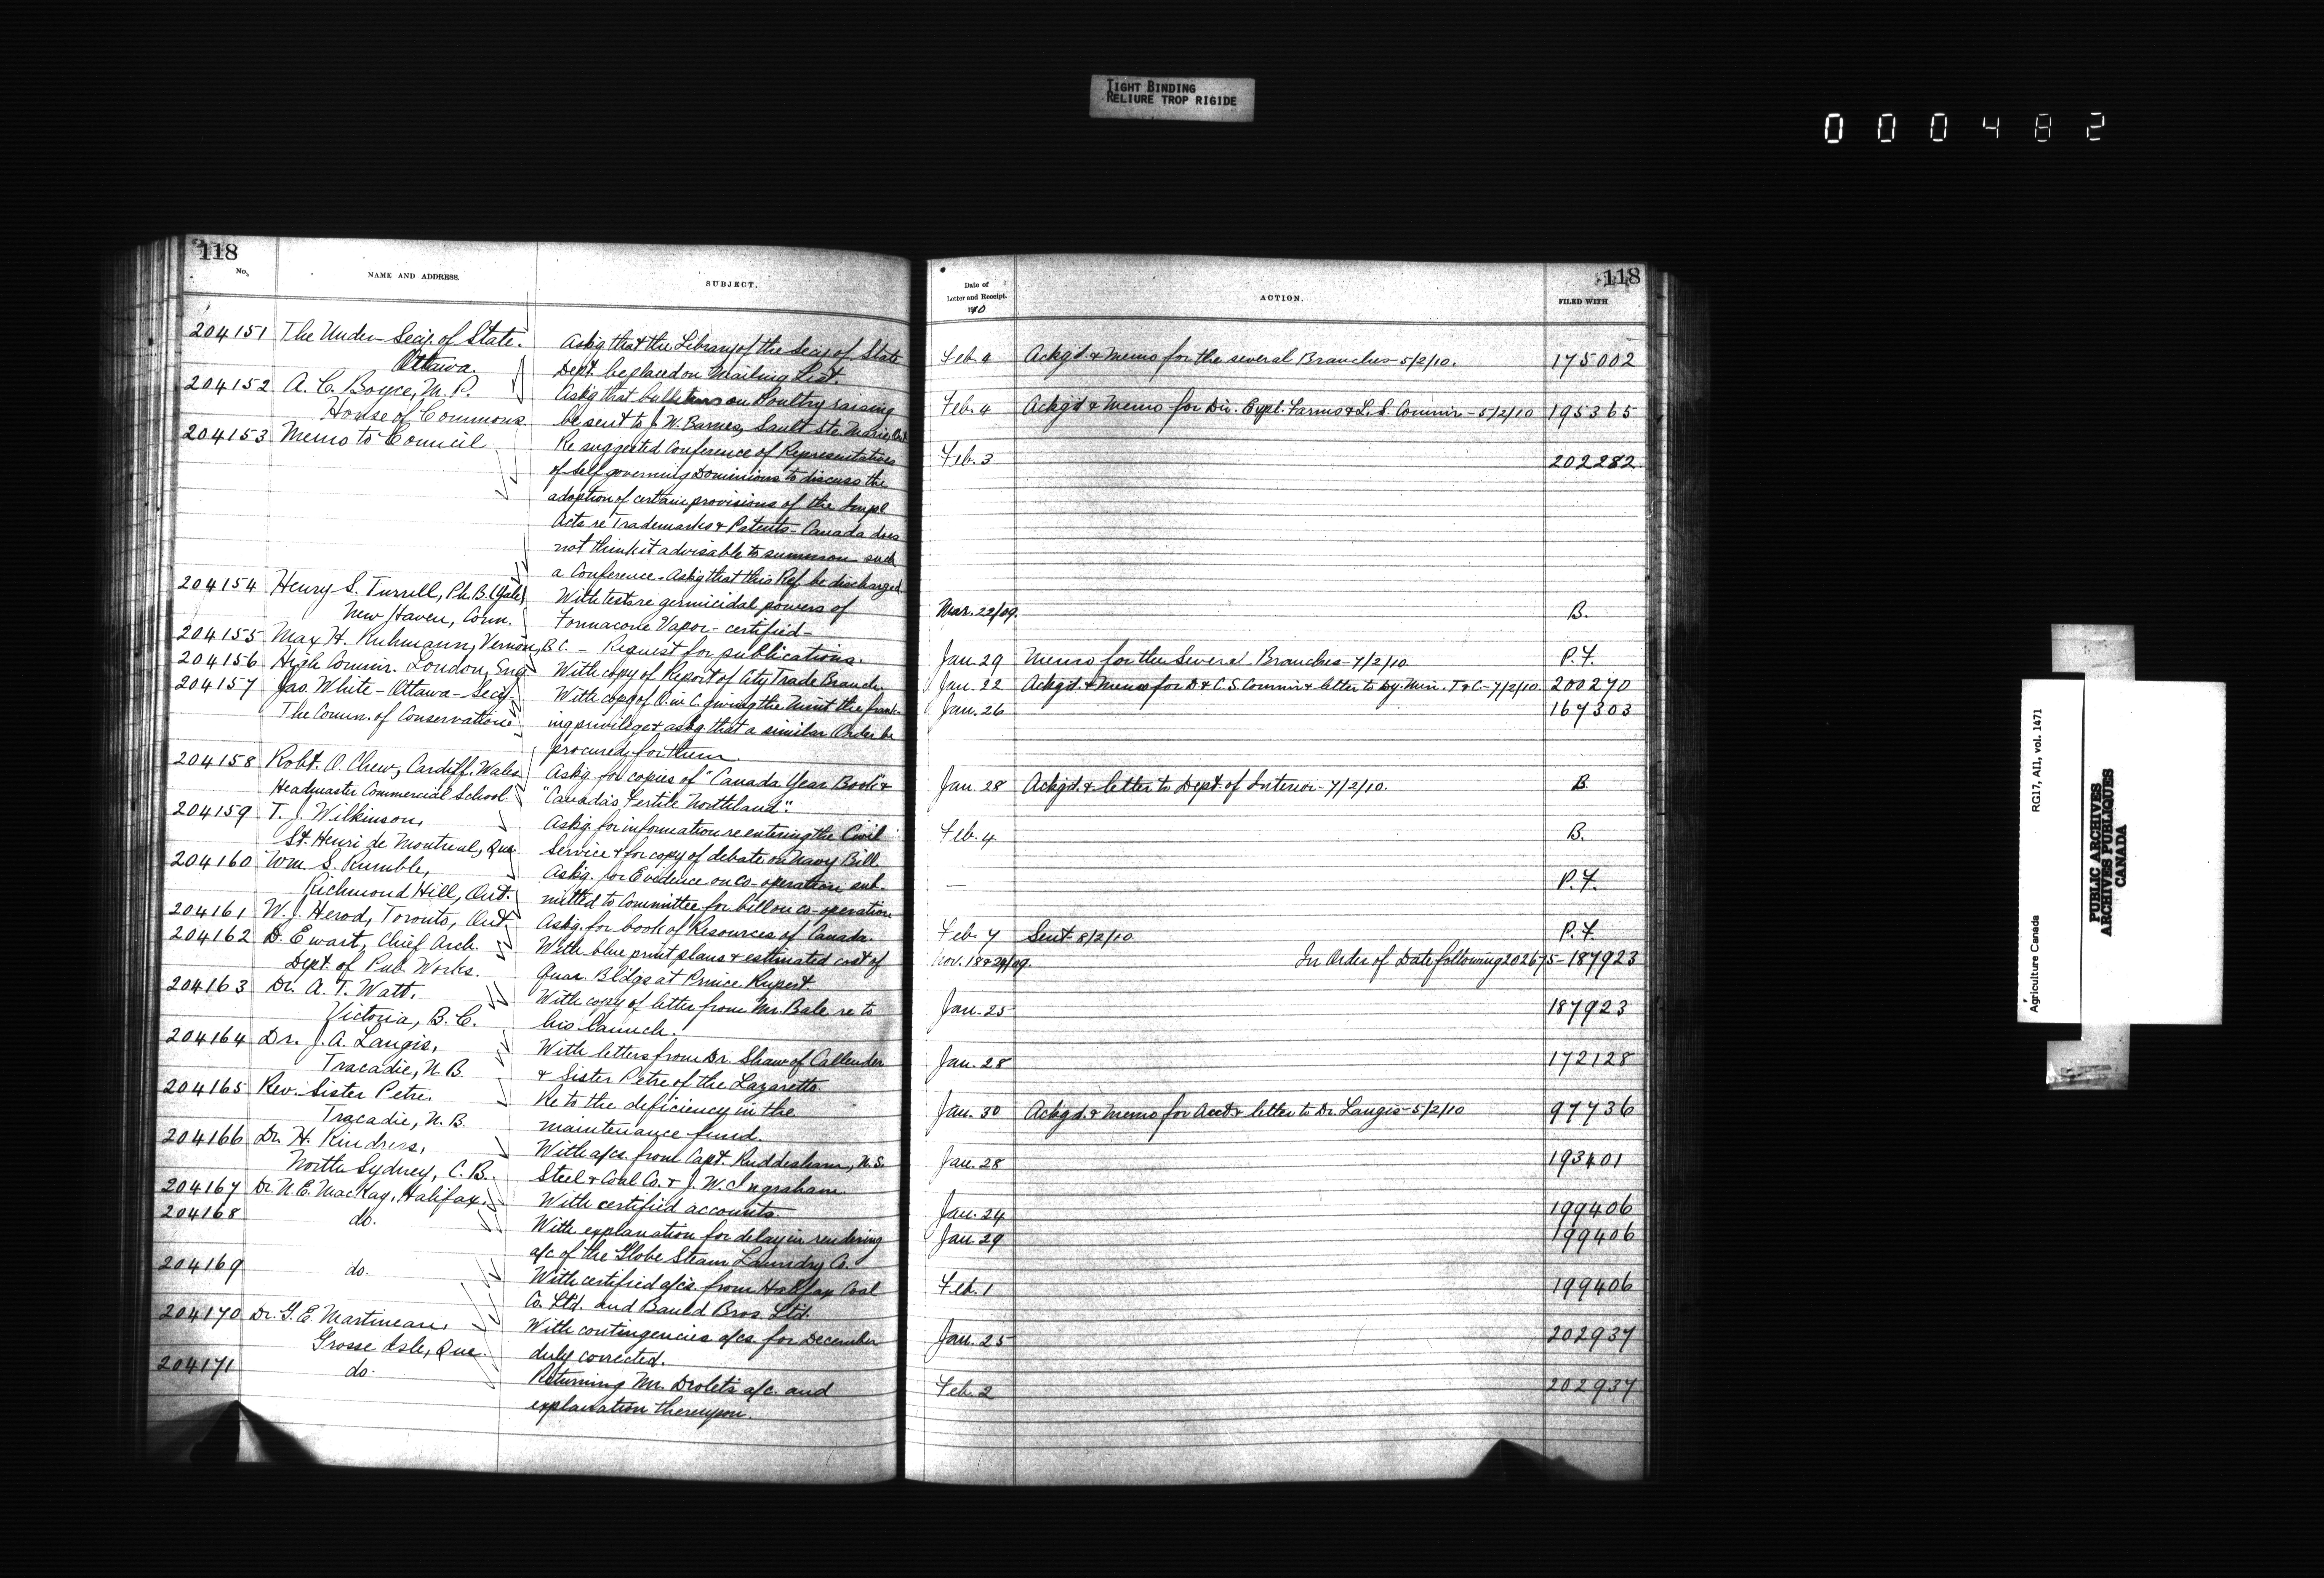 TIGHT BINDING
RELIURE TROP RIGIDE
000482
118
No.
NAME AND ADDRESS.
SUBJECT.
204151 The Under-Secy. of State. Askg that the Library of the Secy of State
Ottawa. Dept. be placed on Mailing List.
204152 A. C. Boyce, M. P. Askg that bulletins on Poultry raising
House of Commons. be sent to J. W. Barnes, Sault Ste. Marie, Ont.
204153 Memo to Council Re suggested Conference of Representatives
of Self governing Dominions to discuss the
adoption of certain provisions of the Impl
Acts re Trademarks & Patents - Canada does
not think it advisable to summon such
a Conference. Askg that this Ref. be discharged.
204154 Henry S. Turrell, Ph.B. (Yale), With tests re germicidal powers of
New Haven, Conn. Formacone Vapor - certified -
204155 Max H. Ruhmann, Vernon, B.C. - Request for publications.
204156 High Commr. London, Eng. With copy of Report of City Trade Branch
204157 Jas. White - Ottawa - Secy. With copy of O. in C. giving the Mint the frank-
The Comn. of Conservation ing privilege & askg. that a similar Order be
procured for them.
204158 Robt. O. Chew, Cardiff, Wales Askg. for copies of "Canada Year Book" &
Headmaster Commercial School. "Canada's Fertile Northland".
204159 T. J. Wilkinson, Askg. for information re entering the Civil
St. Henri de Montreal, Que. Service & for copy of debate on Navy Bill
204160 Wm. S. Rumble, Askg. for Evidence on co-operation sub-
Richmond Hill, Ont. mitted to Committee for bill on co-operation
204161 W. J. Herod, Toronto, Ont. Askg. for book of Resources of Canada.
204162 D. Ewart, Chief Arch. With blue print plans & estimated cost of
Dept. of Pub. Works. Quar. Bldgs at Prince Rupert
204163 Dr. A. T. Watt. With copy of letter from Mr. Bale re to
Victoria, B. C. his launch.
204164 Dr. J. A. Langis, With letters from Dr. Shaw of Callender
Tracadie, N. B. & Sister Petre of the Lazaretto.
204165 Rev. Sister Petre. Re to the deficiency in the
Tracadie, N. B. maintenance fund.
204166 Dr. H. Rindress, With a/cs. from Capt. Ruddesham, N. S.
North Sydney, C. B. Steel & Coal Co. & J. W. Ingraham.
204167 Dr. N. E. MacKay, Halifax. With certified accounts.
204168 do. With explanation for delay in rendering
a/c of the Globe Steam Laundry Co.
204169 do. With certified a/cs. from Halifax Coal
Co. Ltd. and Bauld Bros. Ltd.
204170 Dr. G. E. Martineau, With contingencies a/cs. for December
Grosse Isle, Que. duly corrected.
204171 do. Returning Mr. Drolet's a/c. and
explanation thereupon.
118
Date of
Letter and Receipt.
1910
ACTION.
FILED WITH
Feb. 4 Ackg'd & Memo for the several Branches - 5/2/10. 175002
Feb. 4 Ackg'd & Memo for Dir. Expl. Farms & L. S. Commr - 5/2/10 195365
Feb. 3 202282
Mar. 22/09. B.
Jan. 29 Memo for the Several Branches - 7/2/10 P.F.
Jan. 22 Ackg'd. & Memo for D & C. S. Commr & letter to Dy. Min. T & C - 7/2/10 200270
Jan. 26 167303
Jan. 28 Ackg'd. & letter to Dept. of Interior - 7/2/10. B
Feb. 4 B.
— P.F.
Feb. 7 Sent 8/2/10 P.F.
Nov. 18 & 24/09. In Order of Date following 202675 - 187923
Jan. 25 187923
Jan. 28 172128
Jan. 30 Ackg'd. & Memo for Acct. & letter to Dr. Langis - 5/2/10 97736
Jan. 28 193401
Jan. 24 199406
Jan. 29 199406
Feb. 1 199406
Jan. 25 202937
Feb. 2 202937
Agriculture Canada RG17, AI1, vol. 1471
PUBLIC ARCHIVES
ARCHIVES PUBLIQUES
CANADA